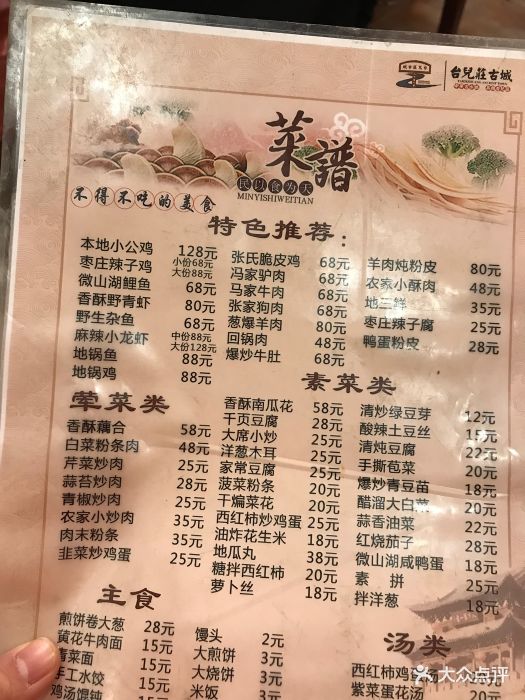 台兒莊古城
菜譜
民以食为天
MINYISHIWEITIAN
不得不吃的美食
特色推荐：
本地小公鸡 128元
枣庄辣子鸡 小份68元 大份88元
微山湖鲤鱼 68元
香酥野青虾 80元
野生杂鱼 68元
麻辣小龙虾 中份88元 大份128元
地锅鱼 88元
地锅鸡 88元
张氏脆皮鸡 68元
冯家驴肉 68元
马家牛肉 68元
张家狗肉 68元
葱爆羊肉 80元
回锅肉 48元
爆炒牛肚 68元
羊肉炖粉皮 80元
农家小酥肉 48元
地三鲜 35元
枣庄辣子腐 25元
鸭蛋粉皮 28元
荤菜类
香酥藕合 58元
白菜粉条肉 48元
芹菜炒肉 25元
蒜苔炒肉 28元
青椒炒肉 25元
农家小炒肉 35元
肉末粉条 35元
韭菜炒鸡蛋 25元
素菜类
香酥南瓜花 58元
千页豆腐 28元
大席小炒 25元
洋葱木耳 25元
家常豆腐 25元
菠菜粉条 20元
干煸菜花 20元
西红柿炒鸡蛋 25元
油炸花生米 18元
地瓜丸 38元
糖拌西红柿 20元
萝卜丝 18元
清炒绿豆芽 12元
酸辣土豆丝 15元
清炖豆腐 22元
手撕苞菜 20元
爆炒青豆苗 18元
醋溜大白菜 20元
蒜香油菜 22元
红烧茄子 28元
微山湖咸鸭蛋 18元
素 拼 25元
拌洋葱 18元
主食
煎饼卷大葱 28元
黄花牛肉面 15元
青菜面 15元
手工水饺 15元
鸡汤馄饨 15元
馒头 2元
大煎饼 3元
大烧饼 3元
米饭
汤类
西红柿鸡蛋
紫菜蛋花 20元
大众点评